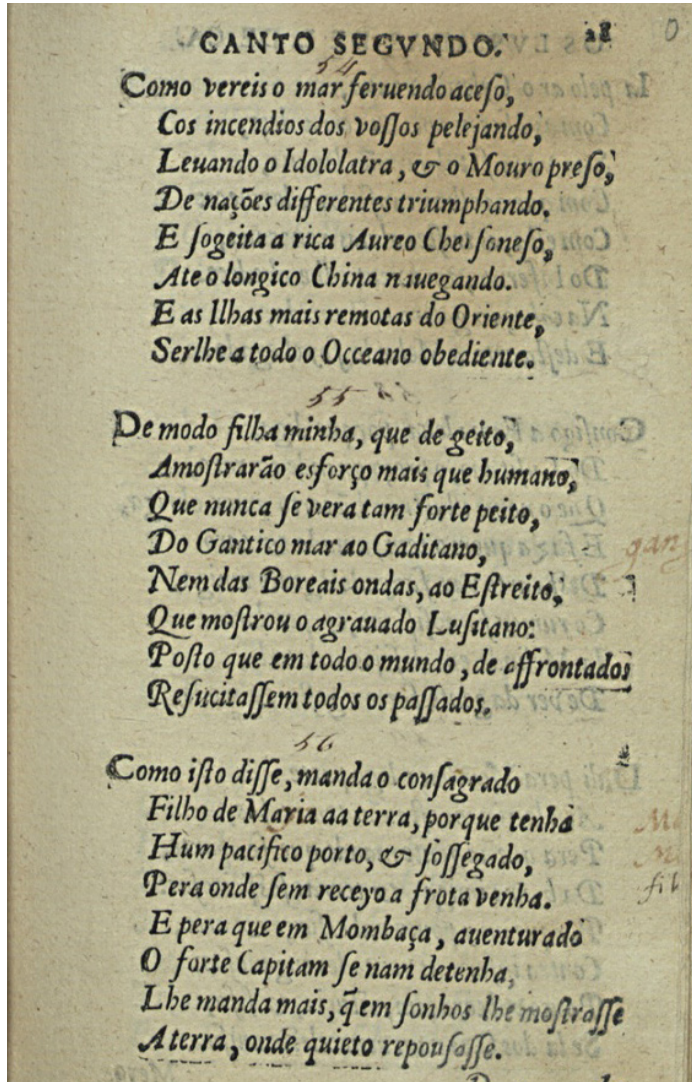 CANTO SEGVNDO. 28
54
Como vereis o mar feruendo aceſo,
Cos incendios dos voſſos pelejando,
Leuando o Idololatra, & o Mouro preſo,
De nações differentes triumphando.
E ſogeita a rica Aureo Cherſoneſo,
Ate o longico China nauegando.
E as Ilhas mais remotas do Oriente,
Serlhe a todo o Occeano obediente.
55
De modo filha minha, que de geito,
Amoſtrarão esforço mais que humano,
Que nunca ſe vera tam forte peito,
Do Gantico mar ao Gaditano,
gan
Nem das Boreais ondas, ao Eſtreito,
Que moſtrou o agrauado Luſitano:
Poſto que em todo o mundo, de affrontados
Reſucitaſſem todos os paſſados.
56
Como iſto diſſe, manda o conſagrado
Filho de Maria aa terra, porque tenha
Hum pacifico porto, & ſoſſegado,
Pera onde ſem receyo a frota venha.
E pera que em Mombaça, auenturado
O forte Capitam ſe nam detenha,
Lhe manda mais, q̃ em ſonhos lhe moſtraſſe
A terra, onde quieto repouſaſſe.